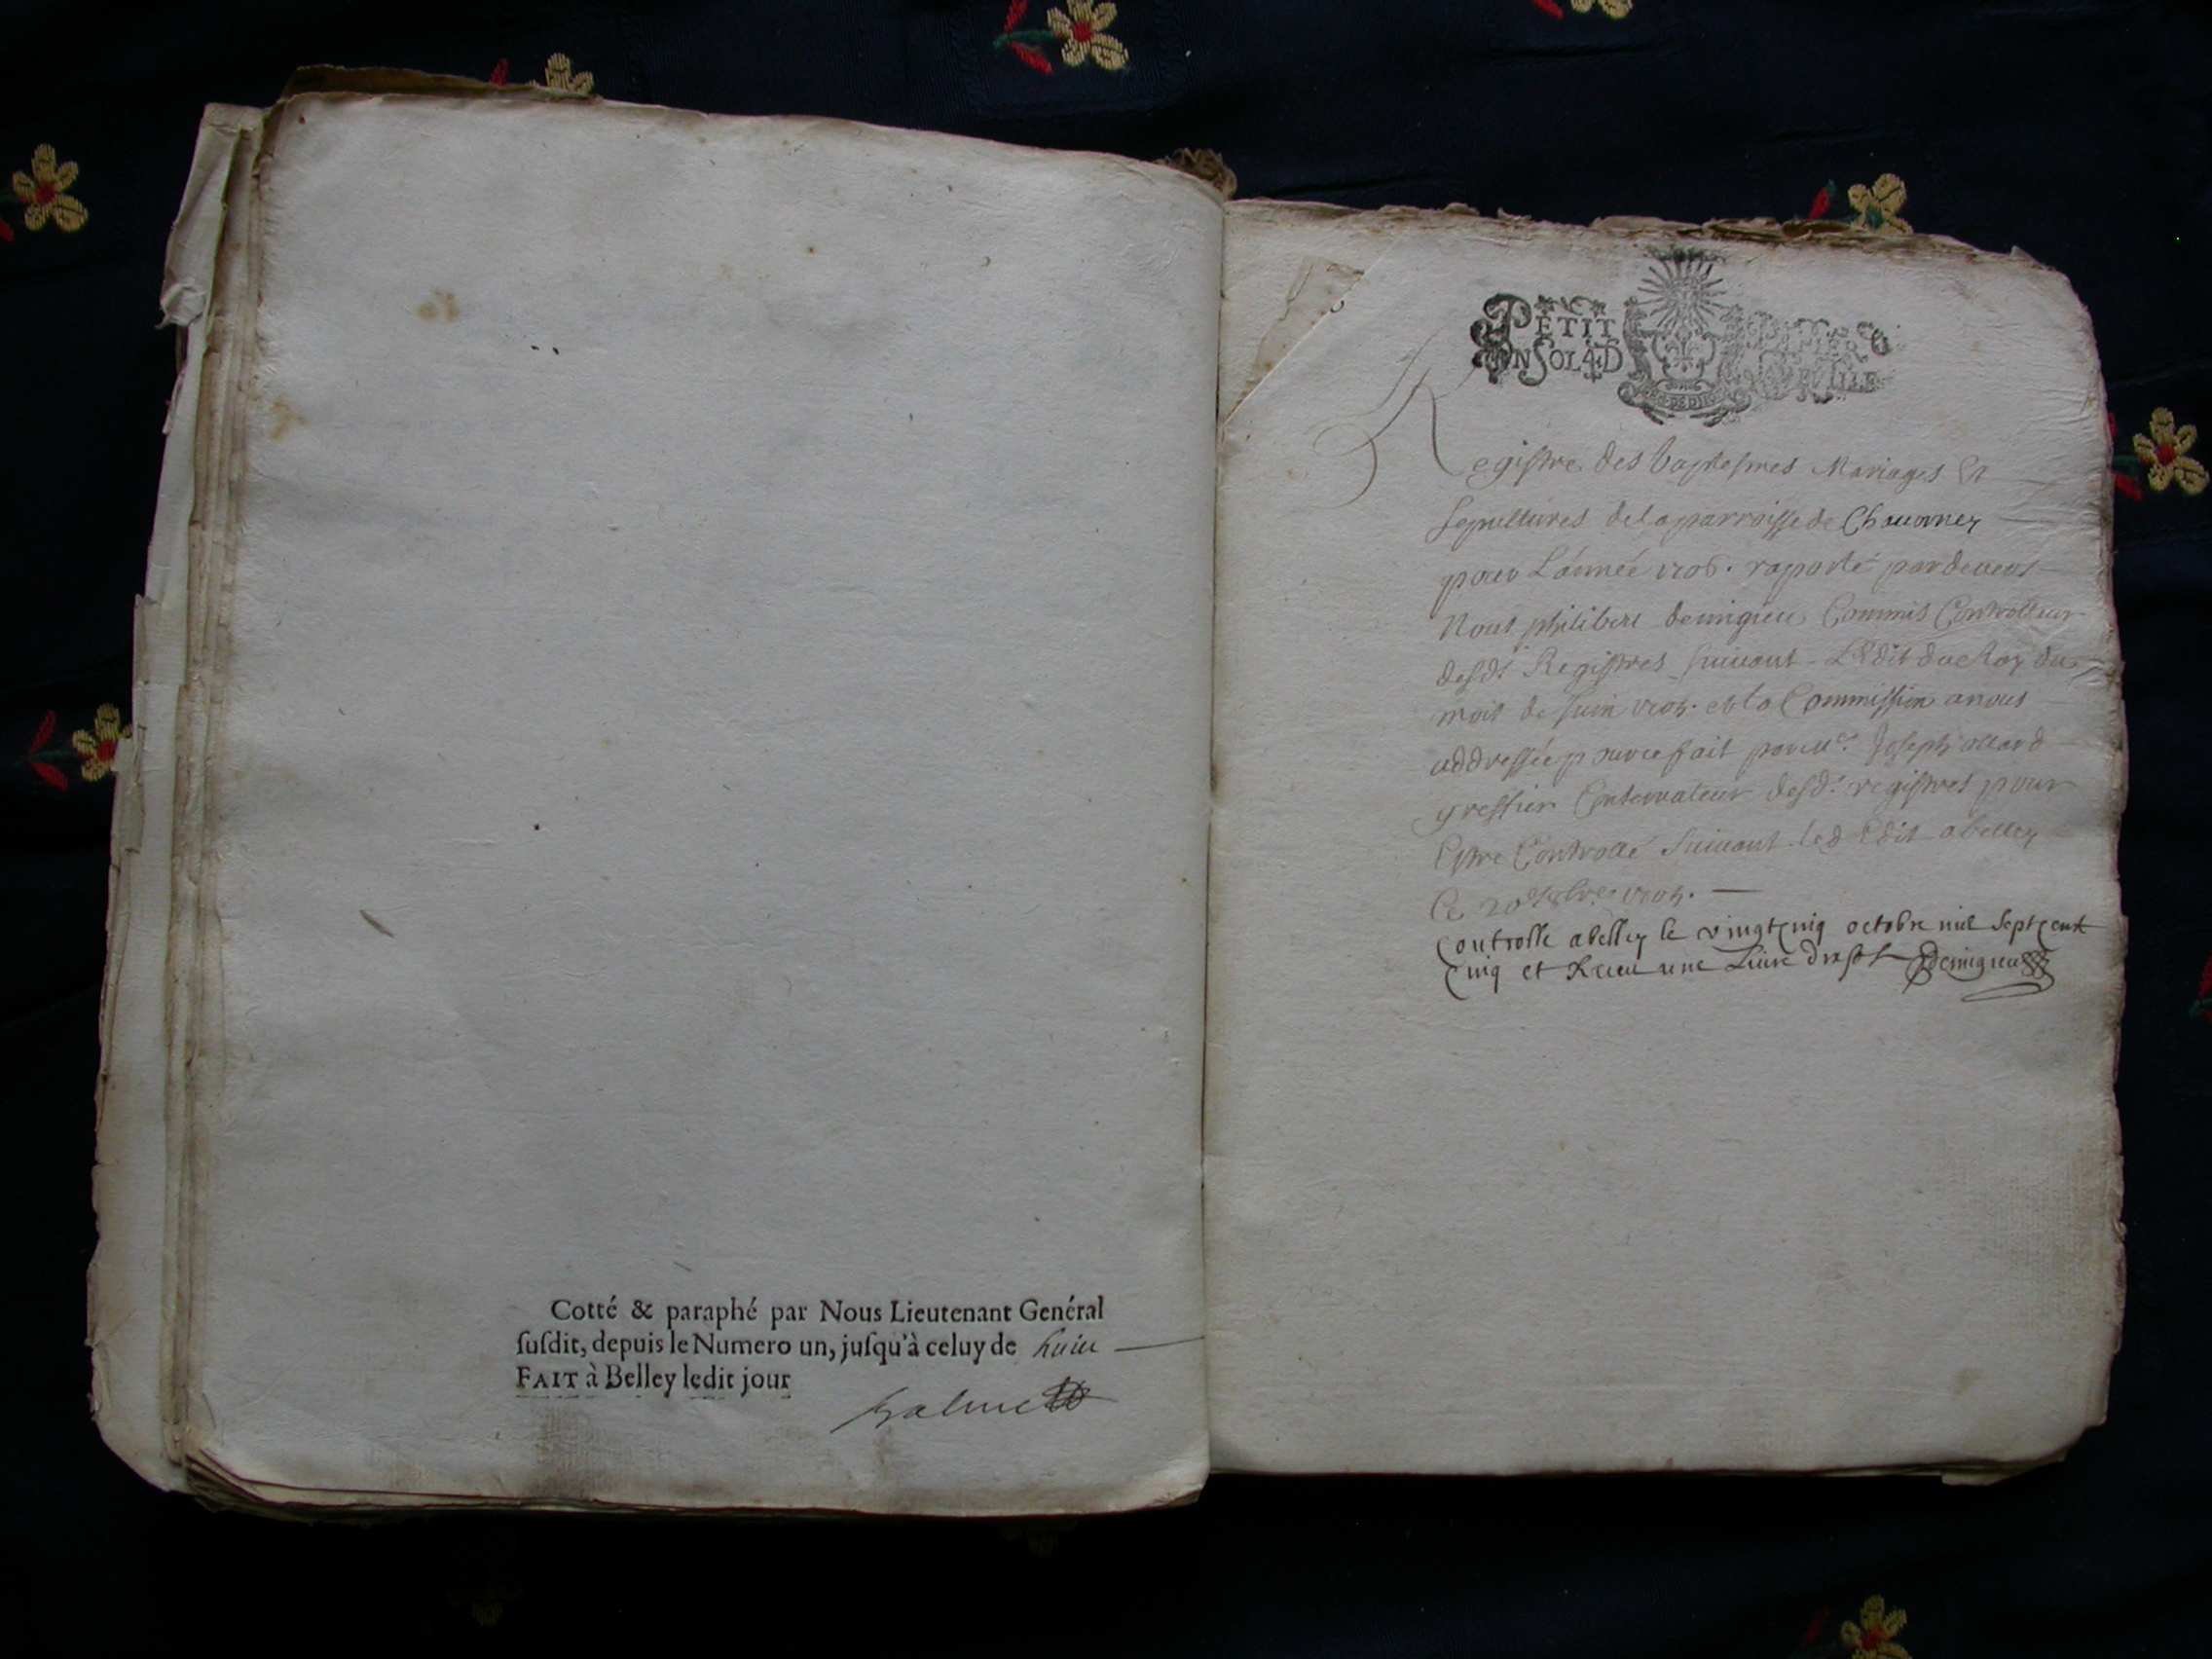 Cotté & paraphé par Nous Lieutenant Genéral
ſuſdit, depuis le Numero un, juſqu'à celuy de huiu
FAIT à Belley ledit jour
PETIT PAPIER
UN SOL 4D
Registre des baptesmes Mariages Et
sepultures de la parroisse de Chauorney
pour L'année 1706. raporté pardeuent
Nous philibert demigieu Commis Controlleur
desds Registres suiuant L'Edit du Roy du
mois de juin 1705. et la Commission a nous
addressée pour ce fait par Me. Joseph allard
greffier Conseruateur desds. registres pour
Estre Controllé suiuant led Edit a belley
Ce 20e 8bre 1705.
Controlle a belley le vingtcinq octobre mil sept cent
cinq et Receu une Liure dix sols Demigieu